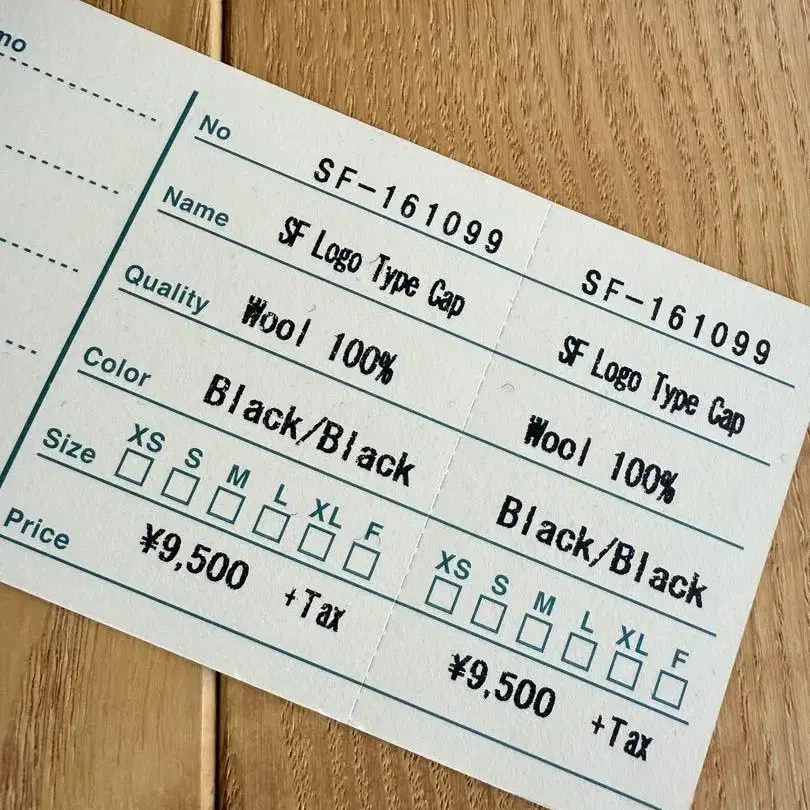 no
No SF-161099
Name SF Logo Type Cap
Quality Wool 100%
Color Black/Black
Size XS S M L XL F
Price ¥9,500 +Tax
SF-161099
SF Logo Type Cap
Wool 100%
Black/Black
XS S M L XL F
¥9,500 +Tax